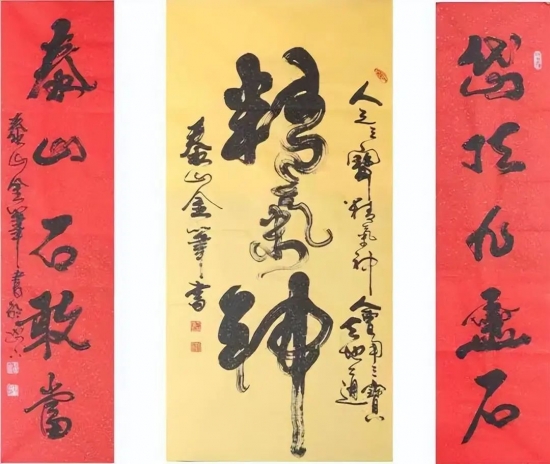 岱
石
人之三寶精氣神
會用三寶
天地之道
精氣神
泰山金筆書
泰山石敢當
泰山金筆書